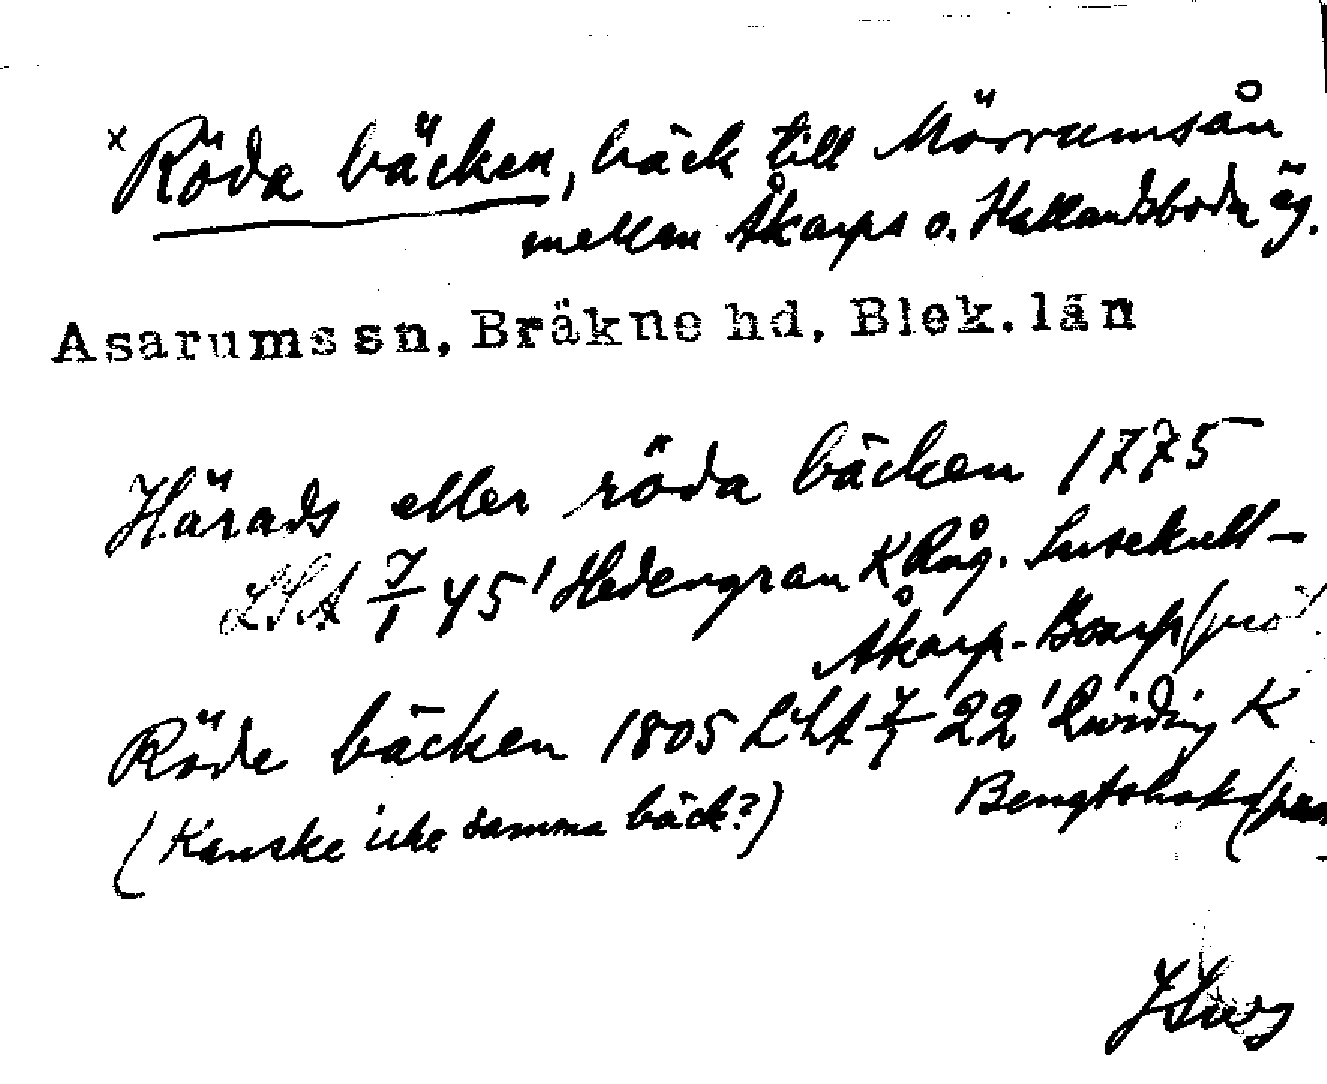 x Röda bäcken, bäck till Mörrumsån
mellan Åkarps o. Hallandsboda äg.
Asarums sn, Bräkne hd, Blek. län
Härads eller röda bäcken 1775
LSA 7/1 45 Hedengran K Råg.
Åkarp-Boarp
Röde bäcken 1805 LSA 7/1 22 K
(Kanske icke samma bäck?)